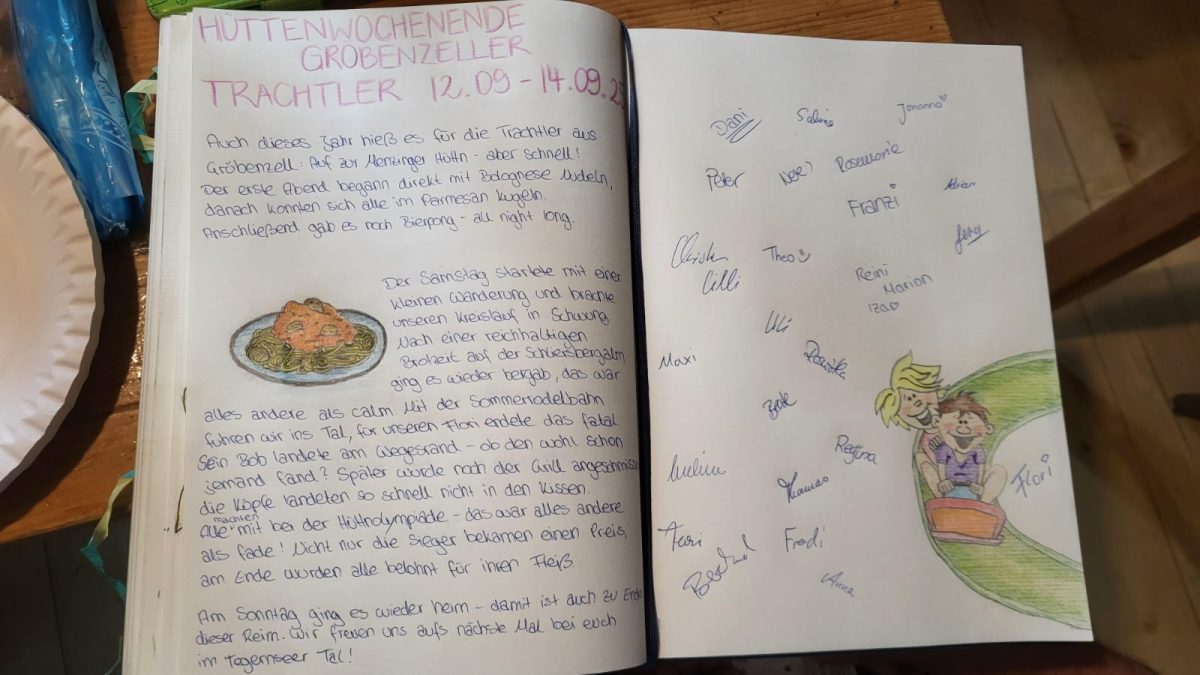 HÜTTENWOCHENENDE
GRÖBENZELLER
TRACHTLER 12.09 - 14.09.25
Auch dieses Jahr hieß es für die Trachtler aus
Gröbenzell: Auf zur Menzinger Hüttn - aber schnell!
Der erste Abend begann direkt mit Bolognese Nudeln,
danach konnten sich alle im Parmesan kugeln.
Anschließend gab es noch Bierpong - all night long.
Der Samstag startete mit einer
kleinen Wanderung und brachte
unseren Kreislauf in Schwung
Nach einer reichhaltigen
Brotzeit auf der Schliersbergalm
ging es wieder bergab, das war
alles andere als calm. Mit der Sommerrodelbahn
fuhren wir ins Tal, für unseren Flori endete das fatal
Sein Bob landete am Wegesrand - ob den wohl schon
jemand fand? Später wurde noch der Grill angeschmissen
die Köpfe landeten so schnell nicht in den Kissen.
Alle machten mit bei der Hüttnolympiade - das war alles andere
als fade! Nicht nur die Sieger bekamen einen Preis,
am Ende wurden alle belohnt für ihren Fleiß.
Am Sonntag ging es wieder heim - damit ist auch zu Ende
dieser Reim. Wir freuen uns aufs nächste Mal bei euch
im Tegernseer Tal!
Dani Sabine Johanna
Peter Rosemarie
Franzi Adrian
Christian Theo
Lilli Reini
Marion
Izao
Uli
Maxi
Regina
Thomas Flori
Fredi
Anna